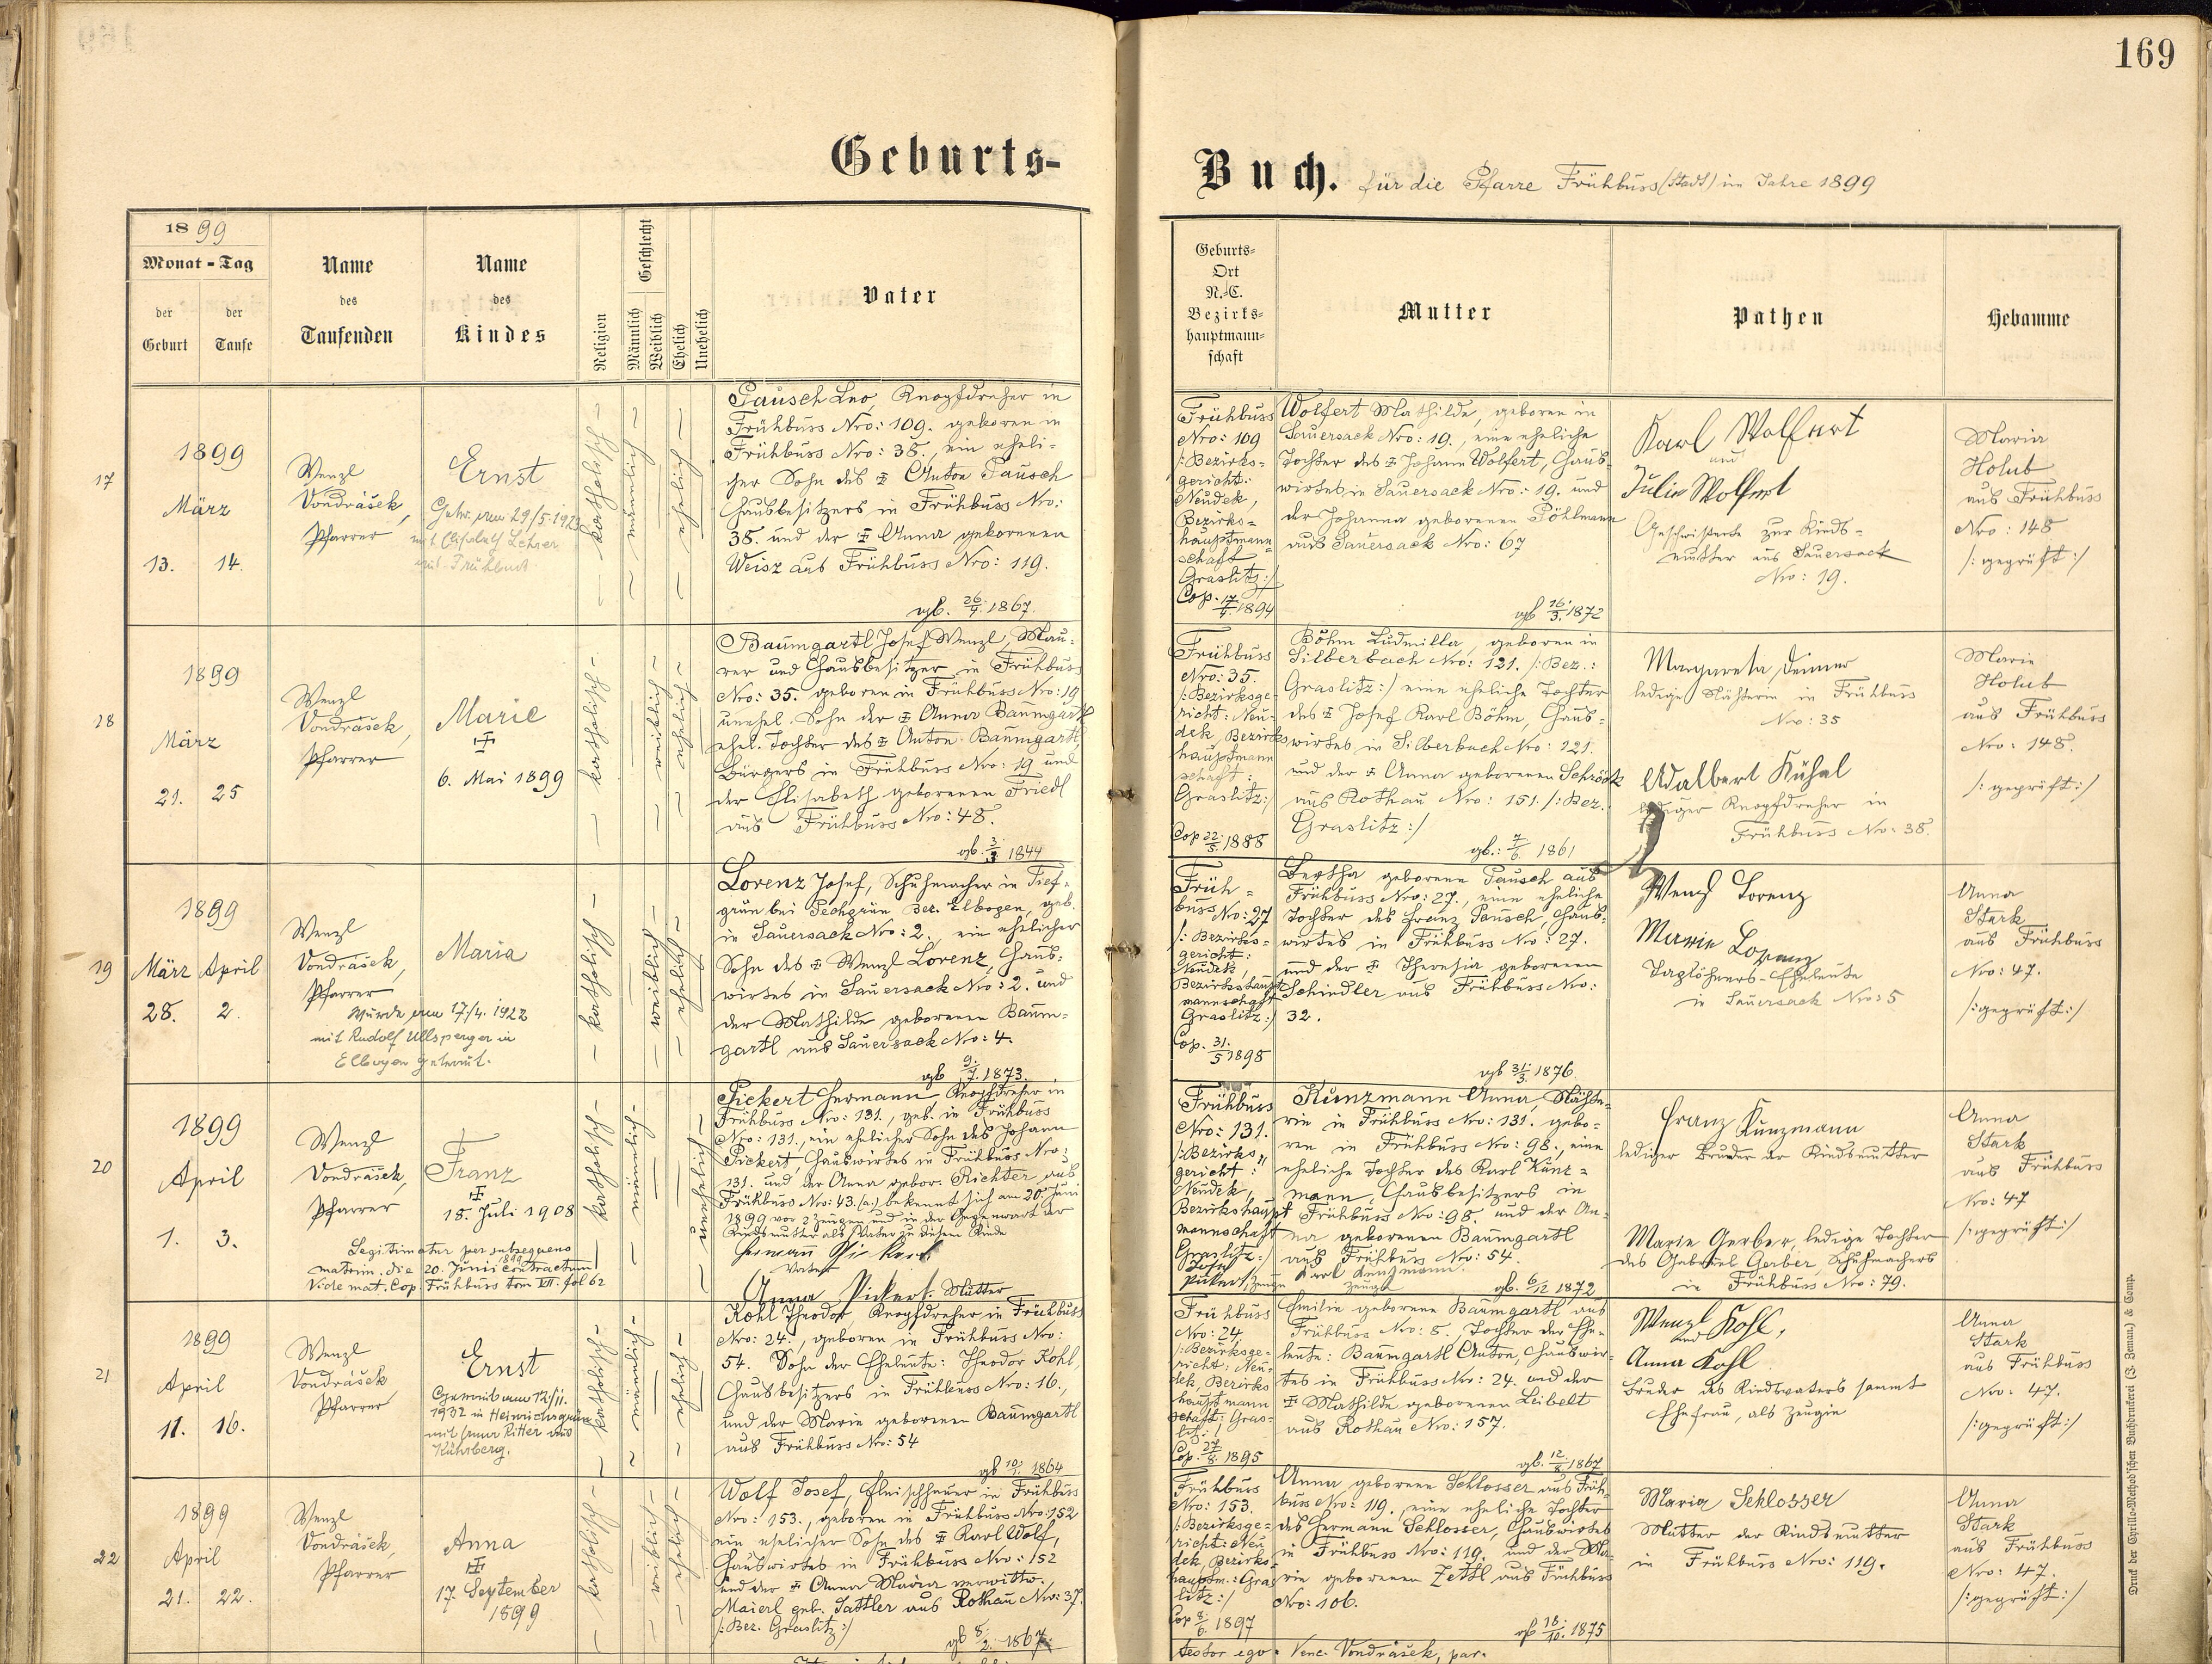 169
Geburts-
Buch. für die Pfarre Frühbuss (Stadt) im Jahre 1899
1899
Monat - Tag
der Geburt
der Taufe
Name des Taufenden
Name des Kindes
Religion
Geschlecht
Männlich
Weiblich
Ehelich
Unehelich
Vater
Geburts-
Ort
N.-C.
Bezirks-
hauptmann-
schaft
Mutter
Pathen
Hebamme
17
1899
März
13. 14.
Wenzl
Vondrášek,
Pfarrer
Ernst
Getr. am 29/5. 1923
mit Elisabeth Lehrer
aus Frühbuss
– katholisch –
– männlich –
– ehelich –
Pausch Leo, Knopfdreher in
Frühbuss Nro: 109. geboren in
Frühbuss Nro: 38., ein eheli-
cher Sohn des ‡ Anton Pausch
Hausbesitzers in Frühbuss Nro:
38. und der ‡ Anna geborenen
Weisz aus Frühbuss Nro: 119.
gb. 26/9. 1867.
Frühbuss
Nro: 109
/: Bezirks=
gericht:
Neudek,
Bezirks-
hauptmann=
schaft
Graslitz:/
Cop. 17/4. 1894
Wolfert Mathilde, geboren in
Sauersack Nro: 19., eine eheliche
Tochter des ‡ Johann Wolfert, Haus-
wirtes in Sauersack Nro: 19. und
der Johanna geborenen Pöhlmann
aus Sauersack Nro: 67
gb 16/3. 1872
Karl Wolfert
und
Julie Wolfert
Geschwisterte zur Kinds=
mutter aus Sauersack
Nro: 19.
Maria
Holub
aus Frühbuss
Nro: 148
/: geprüft :/
18
1899
März
21. 25
Wenzl
Vondrášek,
Pfarrer
Marie
‡
6. Mai 1899
– katholisch –
– weiblich –
– ehelich –
Baumgartl Josef Wenzl, Mau-
rer und Hausbesitzer in Frühbuss
Nro: 35. geboren in Frühbuss Nro: 19
unehel. Sohn der ‡ Anna Baumgartl
ehel. Tochter des ‡ Anton Baumgartl,
Bürgers in Frühbuss Nro: 19 und
der Elisabeth geborenen Friedl
aus Frühbuss Nro: 48.
1844
Frühbuss
Nro: 35.
/: Bezirksge-
richt: Neu-
dek, Bezirks
hauptmann
schaft:
Graslitz:/
Cop 22/5. 1888
Böhm Ludmilla, geboren in
Silberbach Nro: 121. /: Bez.:
Graslitz:/ eine eheliche Tochter
des ‡ Josef Karl Böhm, Haus-
wirtes in Silberbach Nro: 121.
und der ‡ Anna geborenen Schröck
aus Rothau Nro: 151. /: Bez.
Graslitz:/
gb.: 7/6. 1861
Margareta Deimer
ledige Nähterin in Frühbuss
Nro: 35
Adalbert Kühal
lediger Knopfdreher in
Frühbuss Nro: 38.
Marie
Holub
aus Frühbuss
Nro: 148.
/: geprüft :/
19
1899
März April
28. 2.
Wenzl
Vondrášek,
Pfarrer
Maria
Wurde am 17./4. 1922
mit Rudolf Ullsperger in
Elbogen getraut.
– katholisch –
– weiblich –
– ehelich –
Lorenz Josef, Schuhmacher in Tief-
grün bei Pechgrün Bez. Elbogen, geb.
in Sauersack Nro: 2. ein ehelicher
Sohn des ‡ Wenzl Lorenz, Haus-
wirtes in Sauersack Nro: 2. und
der Mathilde geborenen Baum-
gartl aus Sauersack Nro: 4.
gb 9/7. 1873.
Früh=
buss Nro: 27
/: Bezirks=
gericht:
Neudek,
Bezirkshaupt
mannschaft
Graslitz:/
Cop. 31./5 1898
Bertha geborene Pausch aus
Frühbuss Nro: 27., eine eheliche
Tochter des Franz Pausch, Haus-
wirtes in Frühbuss Nro: 27.
und der ‡ Theresia geborenen
Schindler aus Frühbuss Nro:
32.
gb 31/3. 1876.
Wenzl Lorenz
Marie Lorenz
Taglöhners-Eheleute
in Sauersack Nro: 5
Anna
Stark
aus Frühbuss
Nro: 47.
/: geprüft :/
20
1899
April
1. 3.
Wenzl
Vondrášek,
Pfarrer
Franz
‡
18. Juli 1908
Legitimatur per subsequens
matrim. die 20. Juni 1899 contractum
Vide mat. Cop. Frühbuss tom VII. fol 62
– katholisch –
– männlich –
– unehelich –
Pickert Hermann Knopfdreher in
Frühbuss Nro: 131., geb. in Frühbuss
Nro: 131., ein ehelicher Sohn des Johann
Pickert, Hauswirtes in Frühbuss Nro:
131. und der Anna gebor. Richter aus
Frühbuss Nro: 43. (a.) bekennt sich am 20. Juni
1899 vor 2 Zeugen und in der Gegenwart der
Kindsmutter als Vater zu diesem Kinde
Hermann Pickert
Vater
Anna Pickert. Mutter
Frühbuss
Nro: 131.
/: Bezirks
gericht:
Neudek,
Bezirkshaupt
mannschaft
Graslitz:/
Josef
Pickert, Zeuge
Kunzmann Anna, Nähte-
rin in Frühbuss Nro: 131. gebo-
ren in Frühbuss Nro: 98., eine
eheliche Tochter des Karl Kunz=
mann, Hausbesitzers in
Frühbuss Nro: 98. und der An-
na geborenen Baumgartl
aus Frühbuss Nro: 54.
Karl Kunzmann.
Zeuge
gb. 6/12 1872
Franz Kunzmann
lediger Bruder der Kindsmutter
Marie Gerber, ledige Tochter
des Gabriel Gerber, Schuhmachers
in Frühbuss Nro: 79.
Anna
Stark
aus Frühbuss
Nro: 47
/: geprüft :/
21
1899
April
11. 16.
Wenzl
Vondrášek
Pfarrer
Ernst
Getraut am 12./11.
1932 in Heinrichsgrün
mit Ritter aus
Kührberg.
– katholisch –
– männlich –
– ehelich –
Kohl Theodor, Knopfdreher in Frühbuss
Nro: 24., geboren in Frühbuss Nro:
54. Sohn der Eheleute: Theodor Kohl,
Hausbesitzers in Frühbuss Nro: 16.,
und der Marie geborenen Baumgartl
aus Frühbuss Nro: 54
gb 10/1. 1864
Frühbuss
Nro: 24
/: Bezirksge-
richt: Neu-
dek, Bezirks
hauptmann
schaft: Gras-
litz:/
Cop. 27/8. 1895
Emilie geborene Baumgartl aus
Frühbuss Nro: 5. Tochter der Ehe-
leute: Baumgartl Anton, Hauswir-
tes in Frühbuss Nro: 24. und der
‡ Mathilde geborenen Leibelt
aus Rothau Nro: 157.
gb. 12/8. 1867
Wenzl Kohl,
und
Anna Kohl
Bruder des Kindsvaters sammt
Ehefrau, als Zeugin
Anna
Stark
aus Frühbuss
Nro: 47.
/: geprüft :/
22
1899
April
21. 22.
Wenzl
Vondrášek,
Pfarrer
Anna
‡
17. September
1899
– katholisch –
– weiblich –
– ehelich –
Wolf Josef, Fleischhauer in Frühbuss
Nro: 153., geboren in Frühbuss Nro: 152
ein ehelicher Sohn des ‡ Karl Wolf,
Hauswirtes in Frühbuss Nro: 152
und der ‡ Anna Maria verwittw.
Maierl geb. Sattler aus Rothau Nro: 37.
/: Bez. Graslitz:/
gb 8/2. 1867.
Frühbuss
Nro: 153.
/: Bezirksge=
richt: Neu
dek, Bezirks-
hauptm.: Gras
litz:/
Cop 8/6. 1897
Anna geborene Schlosser aus Früh-
buss Nro: 119. eine eheliche Tochter
des Hermann Schlosser, Hauswirtes
in Frühbuss Nro: 119. und der Ma-
rie geborenen Zettl aus Frühbuss
Nro: 106.
gb 18/10. 1875
Maria Schlosser
Mutter der Kindsmutter
in Frühbuss Nro: 119.
Anna
Stark
aus Frühbuss
Nro: 47.
/: geprüft :/
testor ego: Venc. Vondrášek, par.
Druck der Cyrillo-Method'schen Buchdruckerei (J. Zeman) & Comp.